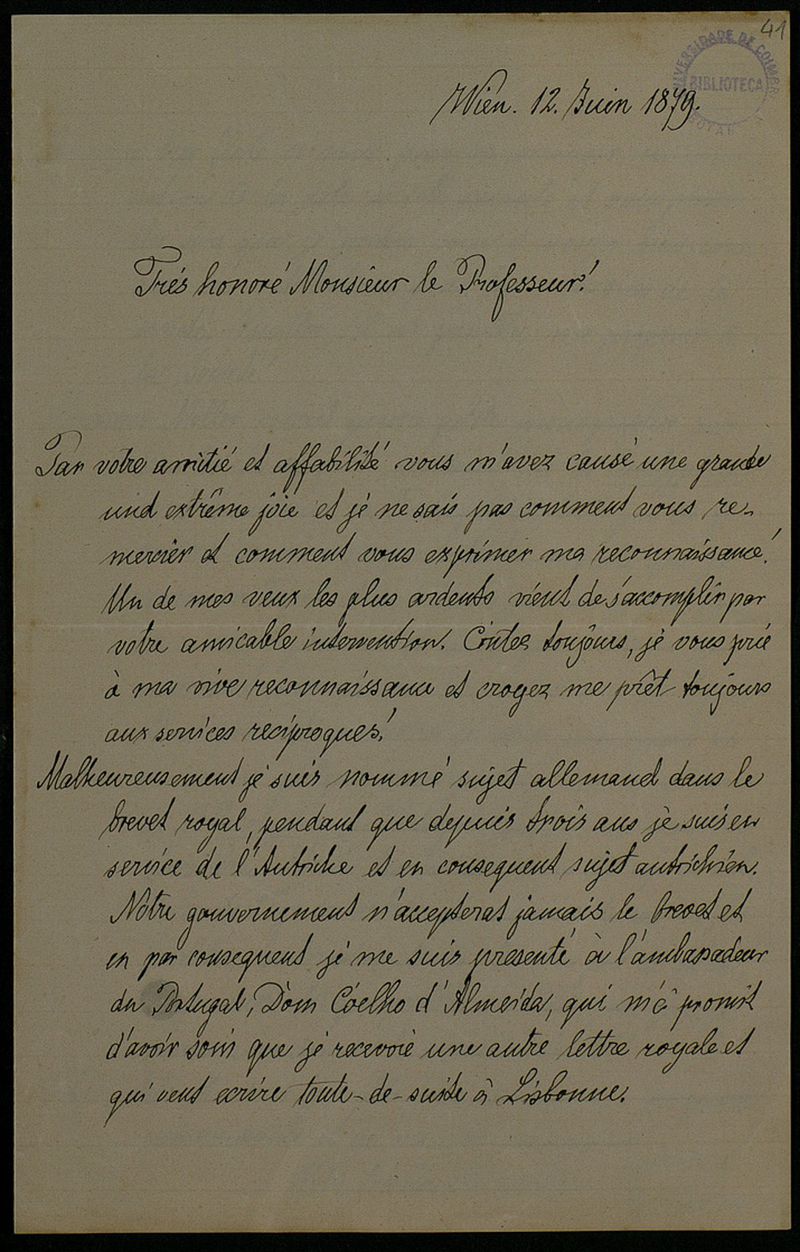 41
UNIVERSIDADE DE COIMBRA
BIBLIOTECA
Wien. 12. Juin 1879.
Trés honoré Monsieur le Professeur!
Par votre amitié et affabilité vous m'avez causé une grande
und extrême joie et je ne sais pas comment vous re-
mercier et comment vous exprimer ma reconnaissance!
Un de mes veux les plus ardents vient de s'accomplir par
votre amicable intervention. Contez toujours, je vous prie
à ma vive reconnaissance et croyez me prêt toujours
aux services reciproques!
Malheureusement je suis nommé sujet allemand dans le
brevet royal, pendant que depuis trois ans je suis en
service de l'Autriche et en consequent sujet autrichien.
Notre gouvernement n'accepterat jamais le brevet et
en par consequent je me suis presenté à l'ambassadeur
du Portugal, Dom Coelho d'Almeida, qui m'a promit
d'avoir soin que je recevoie une autre lettre royale et
qui veut ecrire toute-de-suite à Lisbonne.